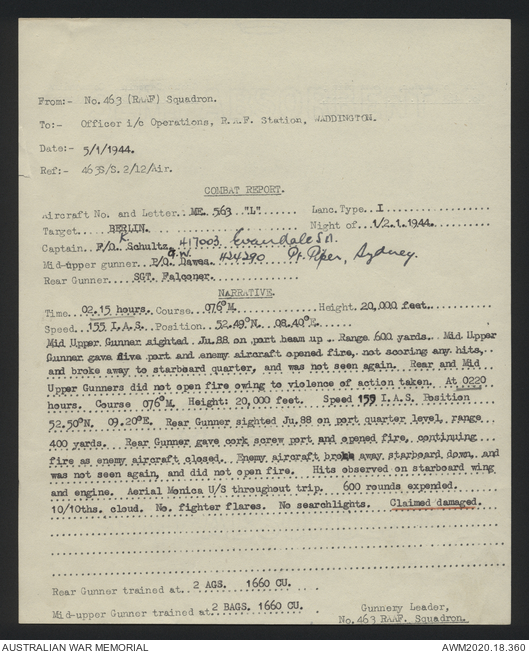 From:- No.463 (RAAF) Squadron.
To:- Officer i/c Operations, R.A.F. Station, WADDINGTON.
Date:- 5/1/1944.
Ref:- 463S/S.2/12/Air.
COMBAT REPORT.
Aircraft No. and Letter ME 563 "L" Lanc.Type I
Target BERLIN. Night of 1/2.1.1944.
Captain P/O. K Schultz, 417003 Evandale SA.
Mid-upper gunner P/O. G.W. Dawes. 424290 Pt. Piper, Sydney.
Rear Gunner SGT. Falconer.
NARRATIVE.
Time 02.15 hours. Course 076°M. Height 20,000 feet.
Speed 155 I.A.S. Position 52.49°N. 08.40°E.
Mid Upper Gunner sighted Ju.88 on port beam up. Range 600 yards. Mid Upper
Gunner gave dive port and enemy aircraft opened fire, not scoring any hits,
and broke away to starboard quarter, and was not seen again. Rear and Mid
Upper Gunners did not open fire owing to violence of action taken. At 0220
hours. Course 076°M. Height: 20,000 feet. Speed 155 I.A.S. Position
52.50°N. 09.20°E. Rear Gunner sighted Ju.88 on port quarter level, range
400 yards. Rear Gunner gave cork screw port and opened fire, continuing
fire as enemy aircraft closed. Enemy aircraft broke away starboard down, and
was not seen again, and did not open fire. Hits observed on starboard wing
and engine. Aerial Monica U/S throughout trip. 600 rounds expended.
10/10ths. cloud. No. fighter flares. No searchlights. Claimed damaged.
Rear Gunner trained at 2 AGS. 1660 CU.
Mid-upper Gunner trained at 2 BAGS. 1660 CU.
Gunnery Leader,
No.463 RAAF. Squadron.
AUSTRALIAN WAR MEMORIAL AWM2020.18.360